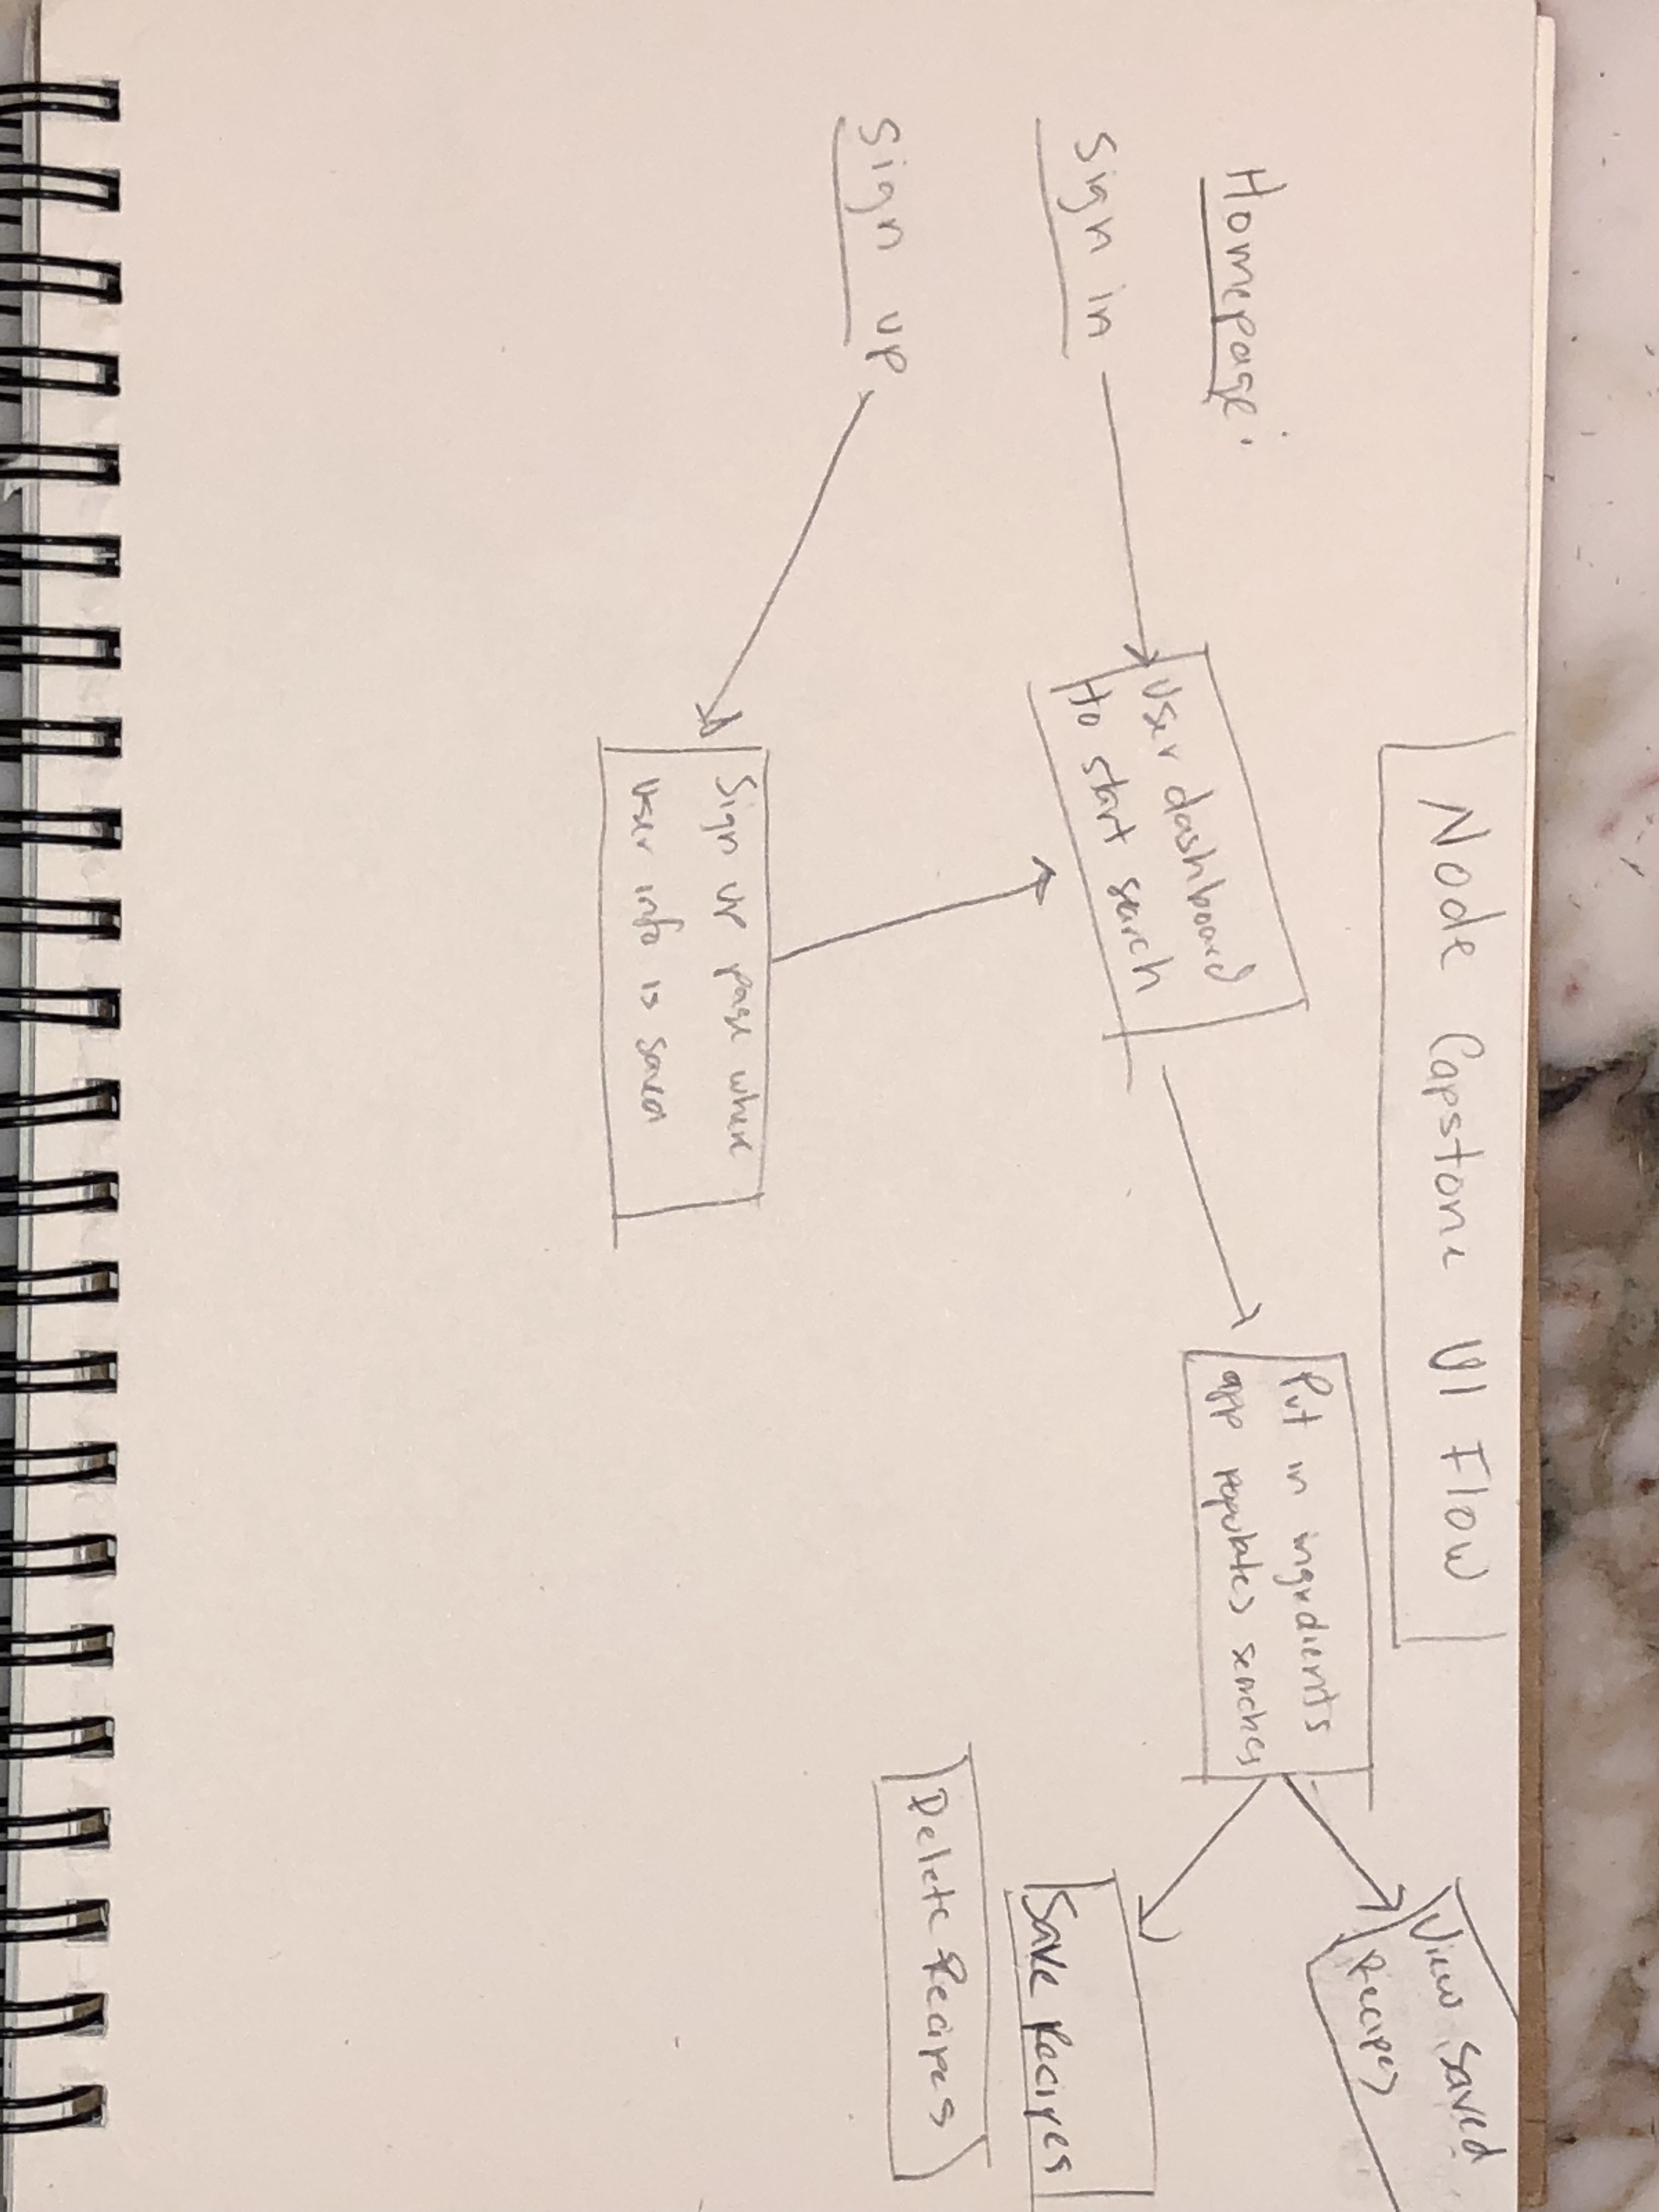 Node Capstone UI Flow
Homepage:
Sign in
Sign up
User dashboard
to start search
Sign up page where
user info is saved
Put in ingredients
app populates searches
View Saved
Recipes
Save Recipes
Delete Recipes